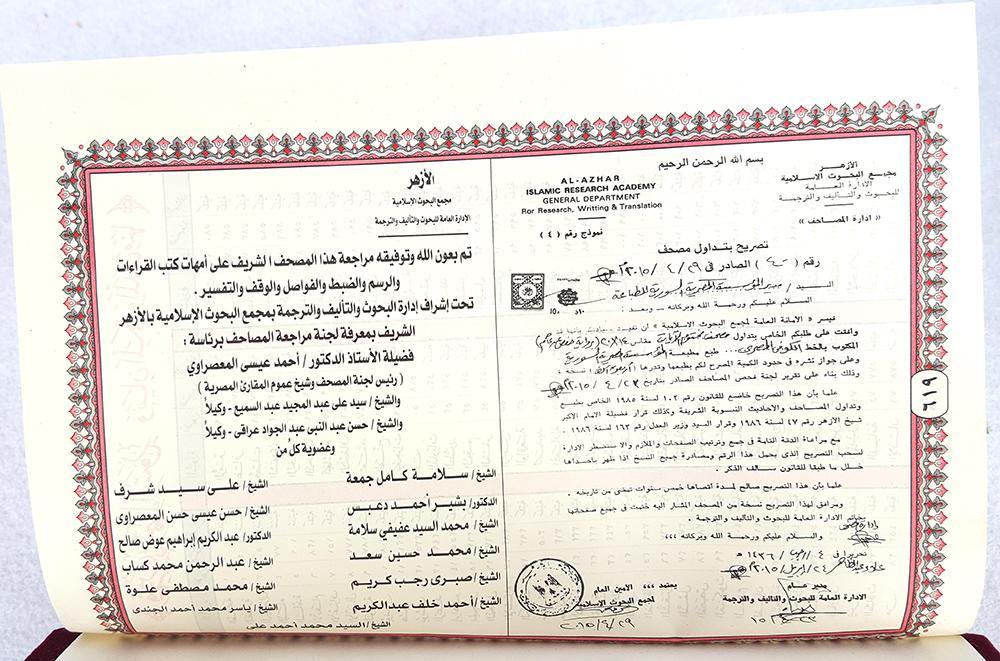 الأزهر
مجمع البحوث الإسلامية
الادارة العامة
للبحوث والتأليف والترجمة
« ادارة المصاحف »
بسم الله الرحمن الرحيم
AL-AZHAR
ISLAMIC RESEARCH ACADEMY
GENERAL DEPARTMENT
Ror Research, Writting & Translation
نموذج رقم ( ٤ )
تصريح بتداول مصحف
رقم ( ٤٠ ) الصادر فى ٢٩ / ٤ / ٢٠١٥ م
السيد /
السلام عليكم ورحمة الله وبركاته – وبعد :
« الأمانة العامة لمجمع البحوث الإسلامية » ان تفيد
وافقت على طلبكم الخاص بتداول
المكتوب بالخط طبع بمطبعة
وعلى جواز نشره فى حدود الكمية المصرح لكم بطبعها وقدرها نسخة ،
وذلك بناء على تقرير لجنة فحص المصاحف الصادر بتاريخ ٢٣ / ٤ / ٢٠١٥
علما بأن هذا التصريح خاضع للقانون رقم ١٠٢ لسنة ١٩٨٥ الخاص بطبع
وتداول المصاحف والاحاديث النبوية الشريفة وكذلك قرار فضيلة الامام الأكبر
شيخ الأزهر رقم ٤٧ لسنة ١٩٨٦ وقرار السيد وزير العدل رقم ١٦٣ لسنة ١٩٨٦ .
مع مراعاة الدقة التامة فى جمع وترتيب الصفحات والملازم والا ستضطر الادارة
لسحب التصريح الذى يحمل هذا الرقم ومصادرة جميع النسخ اذا ظهر باحداها
خلل ما طبقا للقانون سالف الذكر .
علما بأن هذا التصريح صالح لمدة أقصاها خمس سنوات تمضى من تاريخه .
ومرافق لهذا التصريح نسخة من المصحف المشار اليه ختمت فى جميع صفحاتها
بخاتم الادارة العامة للبحوث والتأليف والترجمة .
والسلام عليكم ورحمة الله وبركاته ،،،
تحريرا فى ٤ / رجب / ١٤٣٦ هـ
٢٠١٥ م
مدير عام
الادارة العامة للبحوث والتأليف والترجمة
يعتمد ،،، الأمين العام
لمجمع البحوث الاسلامية
٢٠١٥/٤/٢٩
٦١٩
الأزهر
مجمع البحوث الإسلامية
الإدارة العامة للبحوث والتأليف والترجمة
تم بعون الله وتوفيقه مراجعة هذا المصحف الشريف على أمهات كتب القراءات
والرسم والضبط والفواصل والوقف والتفسير .
تحت إشراف إدارة البحوث والتأليف والترجمة بمجمع البحوث الإسلامية بالأزهر
الشريف بمعرفة لجنة مراجعة المصاحف برئاسة :
فضيلة الأستاذ الدكتور / أحمد عيسى المعصراوي
( رئيس لجنة المصحف وشيخ عموم المقارئ المصرية )
والشيخ / سيد على عبد المجيد عبد السميع - وكيلاً
والشيخ / حسن عبد النبى عبد الجواد عراقى - وكيلاً
وعضوية كل من
الشيخ / سلامة كامل جمعة الشيخ / على سيد شرف
الدكتور / بشير أحمد دعبس الشيخ / حسن عيسى حسن المعصراوى
الشيخ / محمد السيد عفيفي سلامة الدكتور / عبد الكريم إبراهيم عوض صالح
الشيخ / محمد حسين سعد الشيخ / عبد الرحمن محمد كساب
الشيخ / صبرى رجب كريم الشيخ / محمد مصطفى علوة
الشيخ / أحمد خلف عبد الكريم الشيخ / ياسر محمد أحمد الجندى
الشيخ / السيد محمد أحمد على